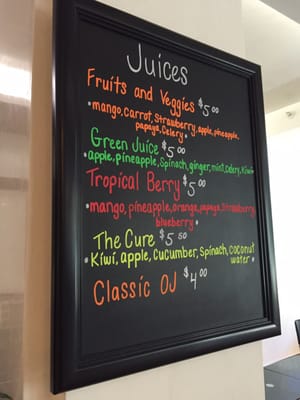 Juices
Fruits and Veggies $5 00
• mango, carrot, strawberry, apple, pineapple,
papaya, celery •
Green Juice $5 00
• apple, pineapple, spinach, ginger, mint, celery, kiwi •
Tropical Berry $5 00
• mango, pineapple, orange, papaya, strawberry,
blueberry •
The Cure $5 50
• Kiwi, apple, cucumber, spinach, coconut
water •
Classic OJ $4 00